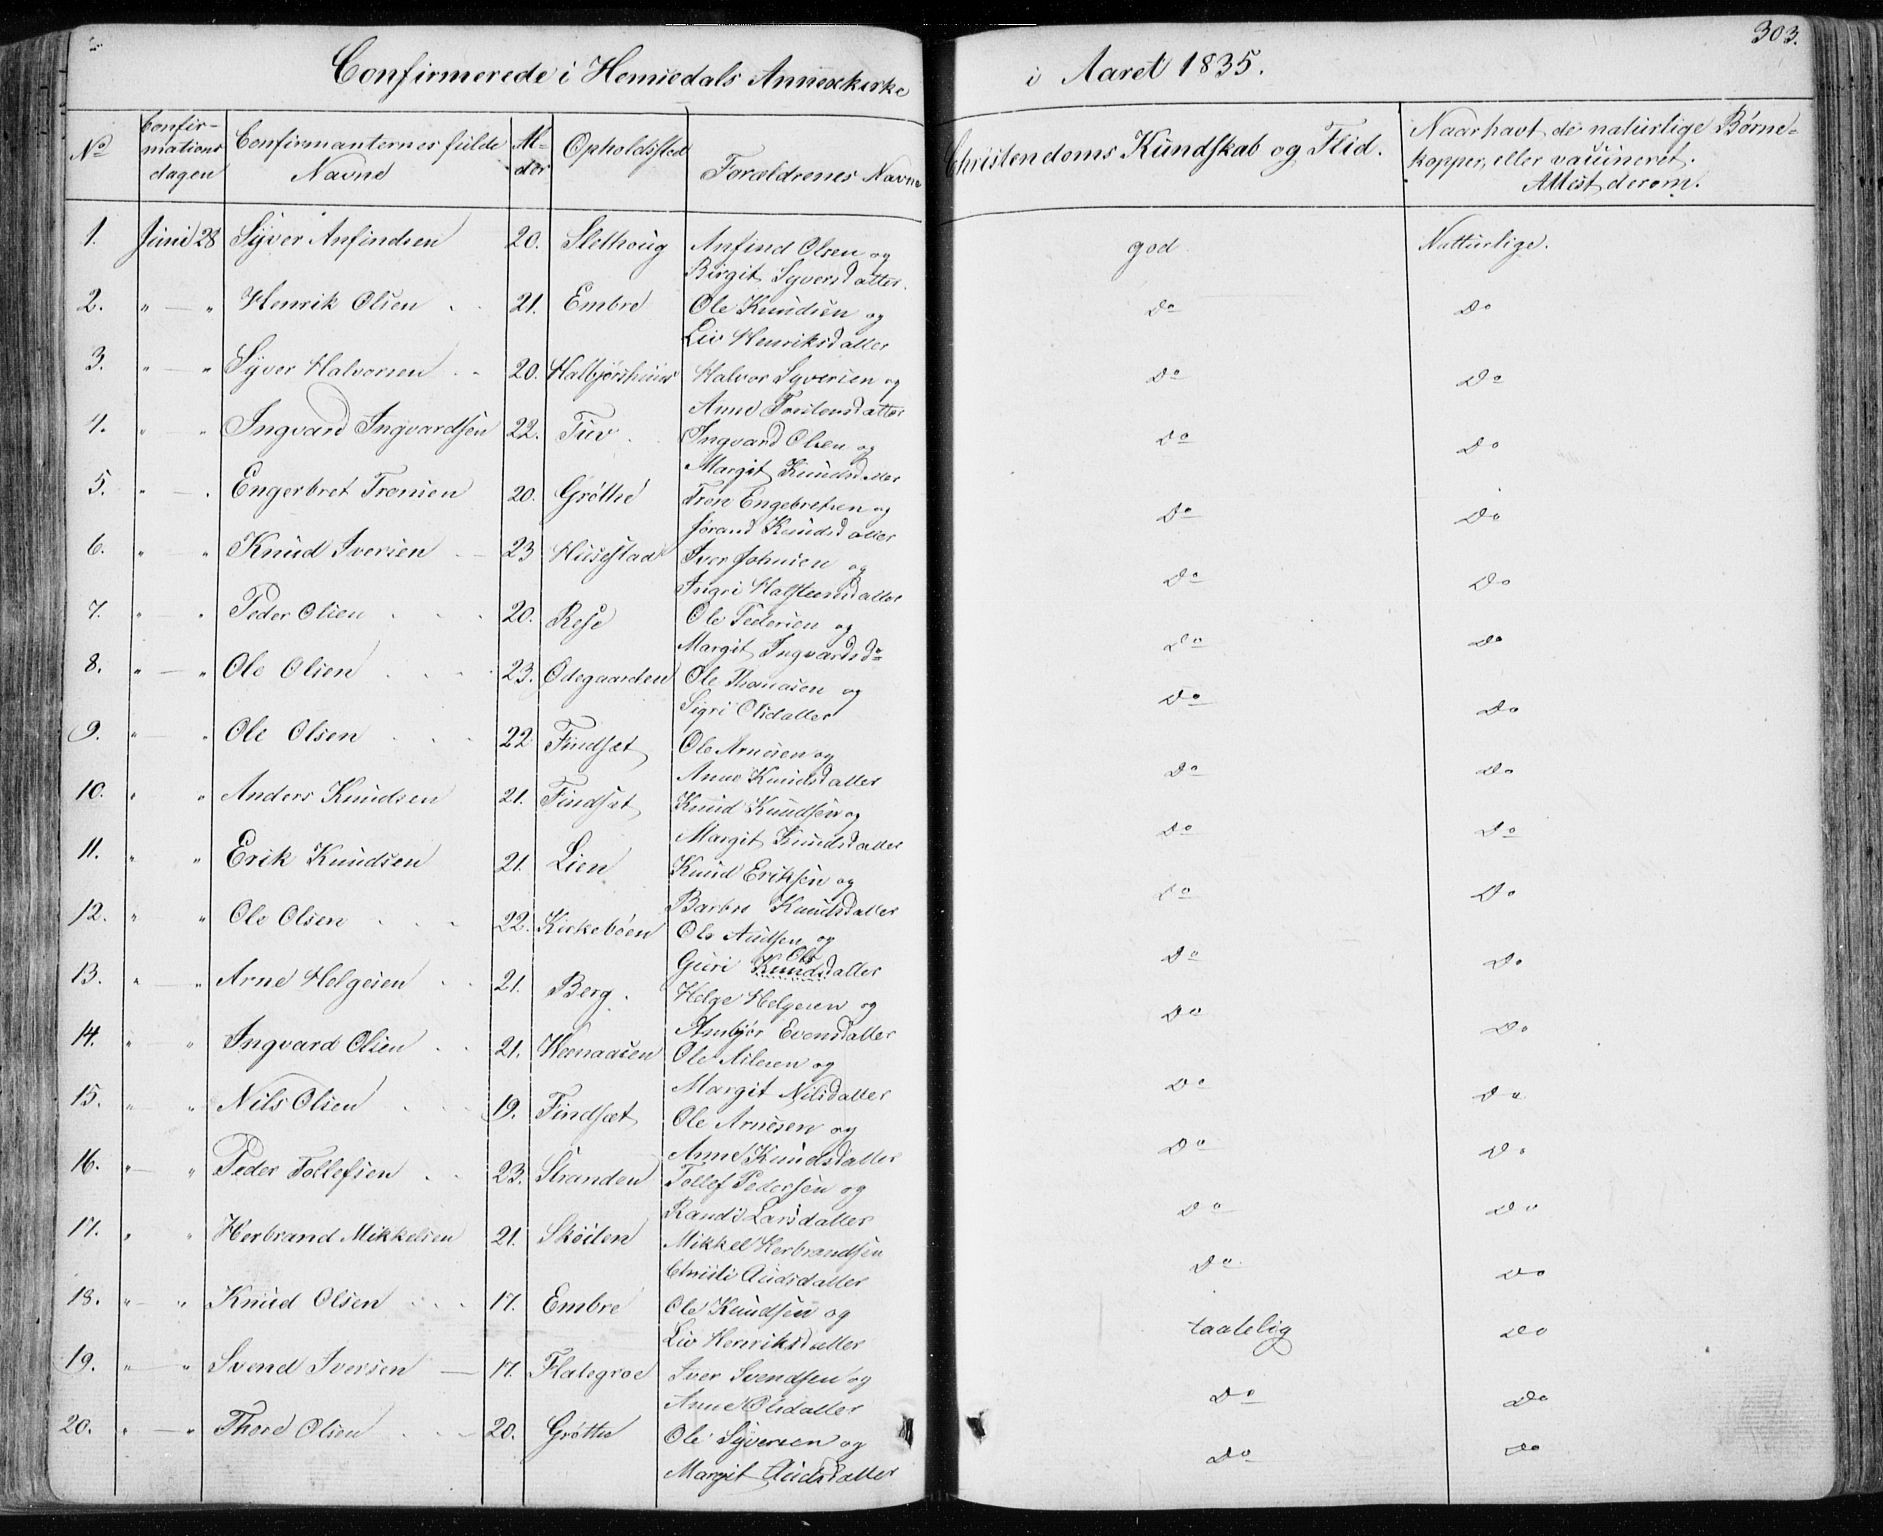 303.
Confirmerede i Hemsedals Annexkirke i Aaret 1835.
No Confirmationsdagen Confirmanternes fulde Navne Alder Opholdssted Forældrenes Navne Christendoms Kundskab og Flid. Naar havt de naturlige Børnekopper, eller vaccineret. Attest derom.
1. Juni 28 Syver Anfindsen 20. Slethoug Anfind Olsen og god. Natturlige.
Birgit Syversdatter.
2. " — " Henrik Olsen 21. Embre Ole Knudsen og Do Do
Liv Henriksdatter
3. " — " Syver Halvorsen 20. Halbjørshuus Halvor Syversen og Do Do
Anne Torstensdatter
4. " " Ingvard Ingvardsen 22. Tuv Ingvard Olsen og Do Do
Margit Knudsdatter
5. " — " Engerbret Tronsen 20. Grøtte Tron Engebretsen og Do Do
Jørand Knudsdatter
6. " " Knud Iversen 23 Husestad Iver Johnsen og Do Do
Ingri Halstensdatter
7. " — " Peder Olsen 20. Ole Pedersen og Do Do
Margit Ingvardsdr
8. " — " Ole Olsen 23. Ødegaarden Ole Thomasen og Do Do
Sigri Olsdatter
9. " — " Ole Olsen 22 Findsæt Ole Arnesen og Do Do
Anne Knudsdatter
10. " " Anders Knudsen 21. Findsæt Knud Knudsen og Do Do
Margit Knudsdatter
11. " " Erik Knudsen 21. Lien Knud Eriksen og Do Do
Barbro Knudsdatter
12. " " Ole Olsen 22. Kirkebøen Ole Audsen og Do Do
Guri Knudsdatter Ols
13. " — " Arne Helgesen 21. Berg. Helge Helgesen og Do Do
Ambjør Evensdatter
14. " " Ingvard Olsen 21. Ole og Do Do
Margit Nilsdatter
15. " " Nils Olsen 19. Findsæt Ole Arnesen og Do Do
Anne Knudsdatter
16. " — " Peder Tollefsen 23. Stranden Tollef Pedersen og Do Do
Randi Larsdatter
17. " " Herbrand Mikkelsen 21. Skøilen Mikkel Herbrandsen Do Do
Christi Audsdatter
18. " — " Knud Olsen 17. Embre Ole Knudsen og taalelig Do
Liv Henriksdatter
19. " — " Svend Iversen 17. Flategroe Iver Svendsen og Do Do
Anne Olsdatter
20. " — " Thore Olsen 20. Grøtte Ole Syversen og Do Do
Margit Audsdatter